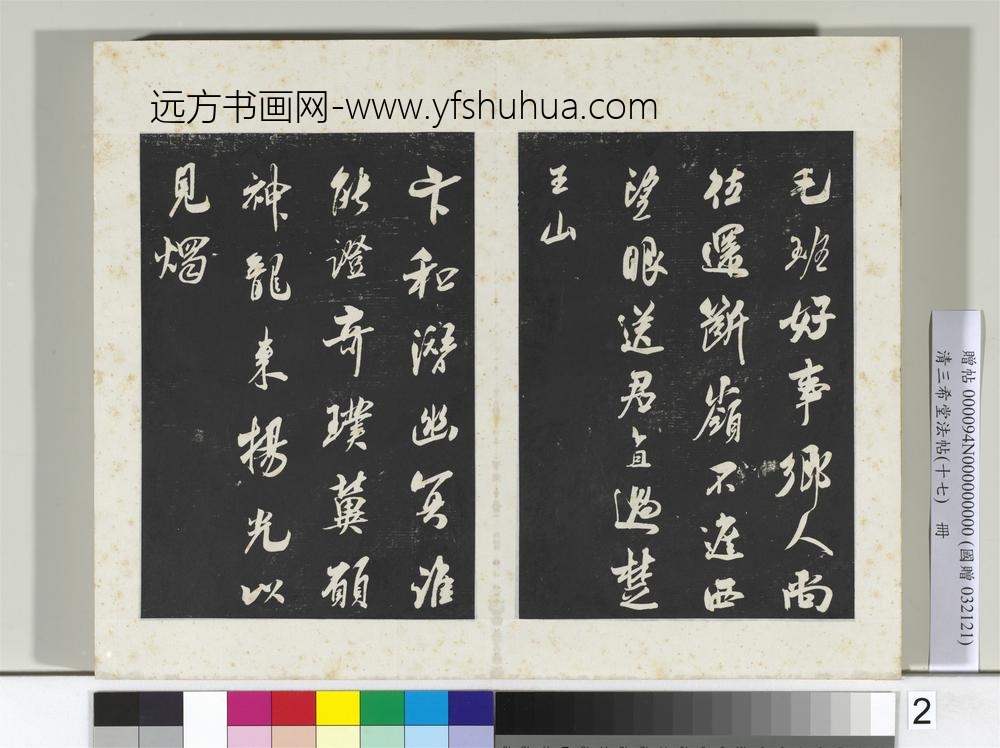 远方书画网-www.yfshuhua.com
毛班好事鄉人尚
往還斷嶺不遮西
望眼送君直過楚
王山
卞和潛幽冥誰
能證奇璞冀願
神龍來揚光以
見燭
贈帖 000094N000000000 (國贈 032121)
清三希堂法帖(十七) 冊
2